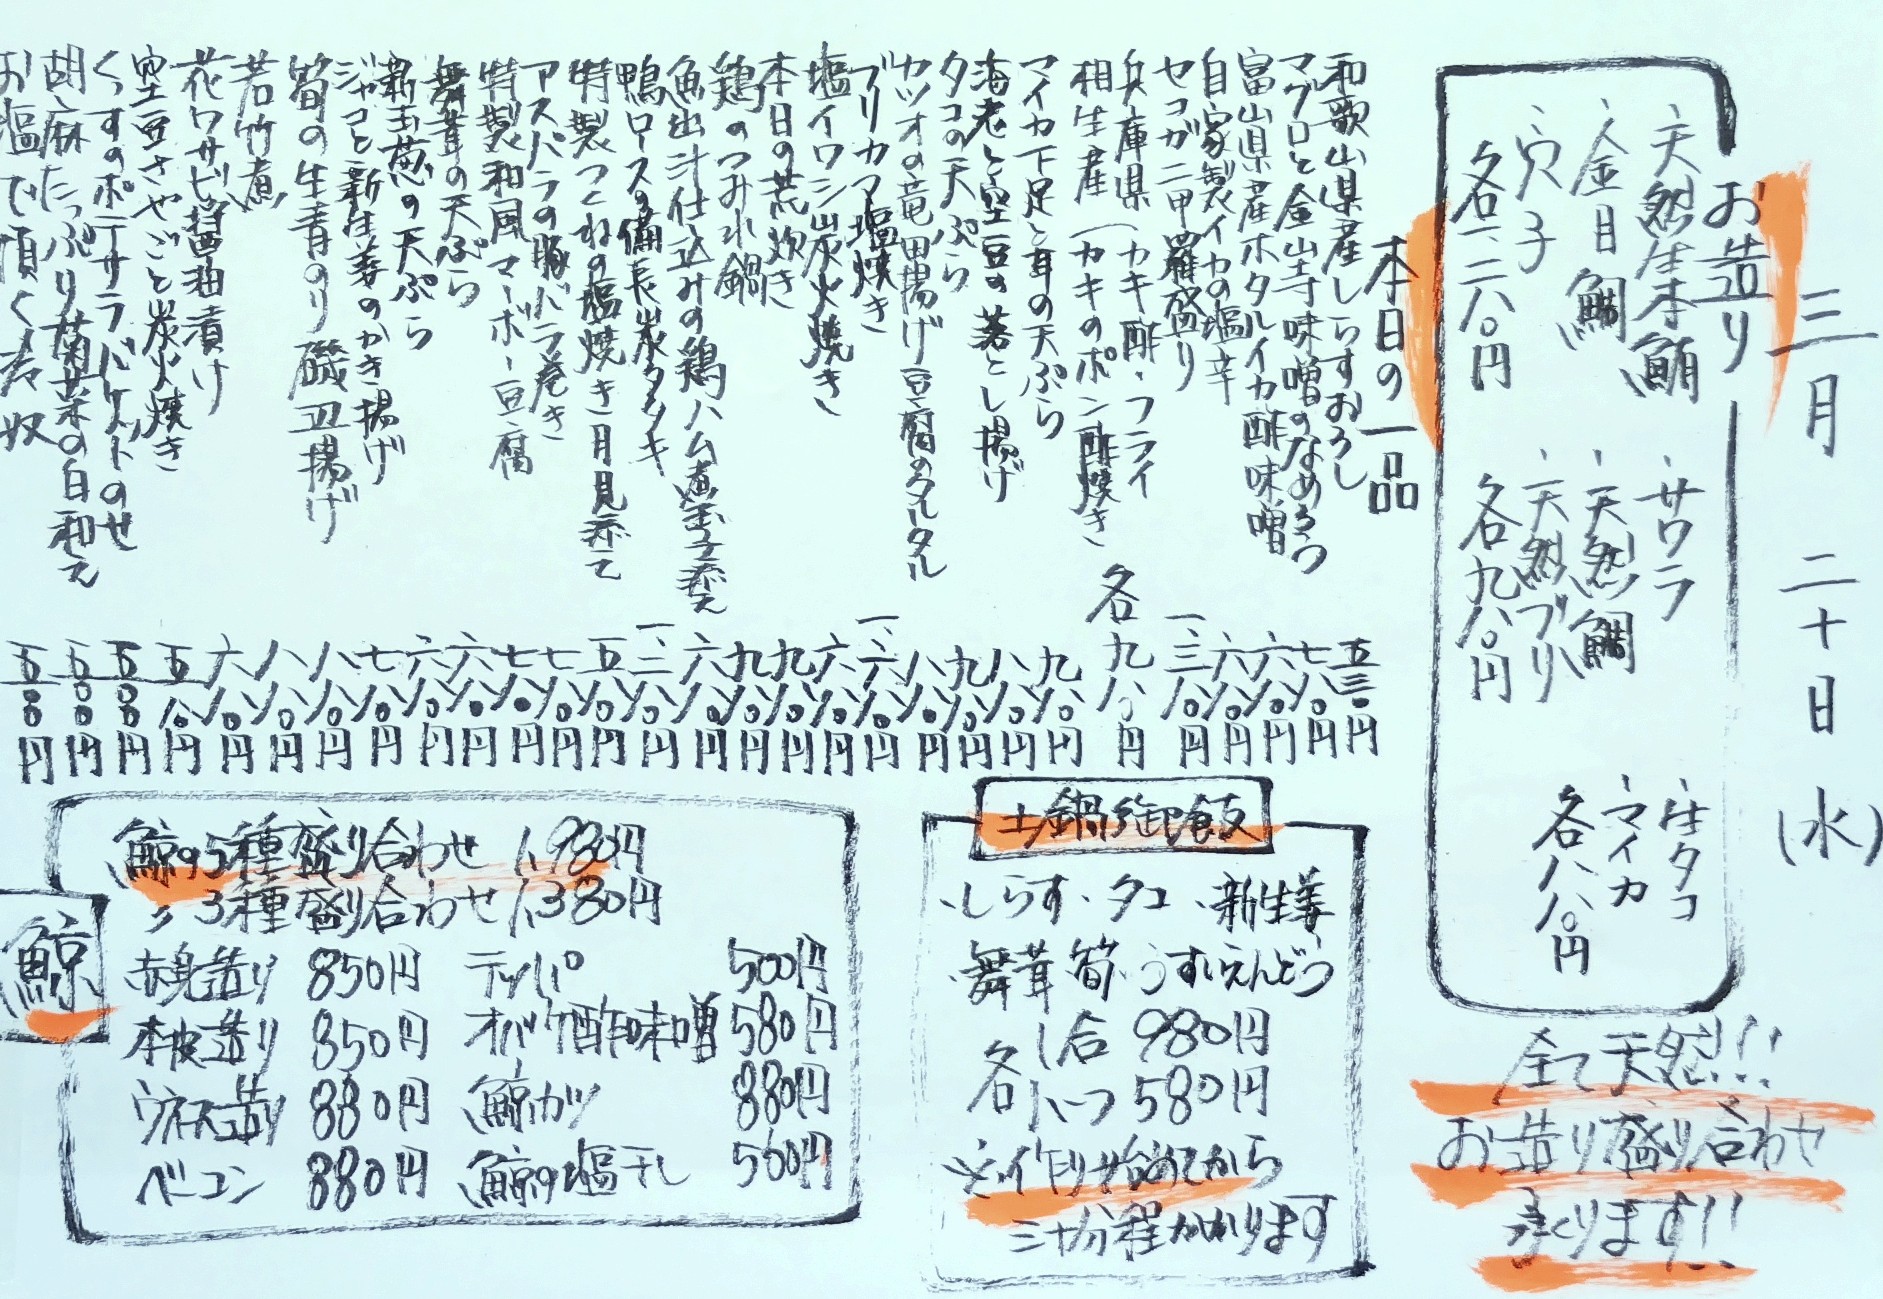 三月 二十日 (水)
お造り
、天然生本鮪
、金目鯛
、穴子
各一、二八〇円
、サワラ
、天然鯛
、天然ブリ
各九八〇円
、生タコ
、マイカ
各八八〇円
全て天然!!!
お造り盛り合わせ
承ります!!
本日の一品
和歌山県産しらすおろし 五三〇円
マグロと金山寺味噌のなめろう 七八〇円
富山県産ホタルイカ酢味噌 六八〇円
自家製イカの塩辛 六八〇円
セコガニ甲羅盛り 一、三八〇円
兵庫県 (カキ酢・フライ
相生産 (カキのポン酢焼き 各九八〇円
マイカ下足と耳の天ぷら 九八〇円
海老と空豆の落とし揚げ 八八〇円
タコの天ぷら 九八〇円
カツオの竜田揚げ豆腐のタルタル 八八〇円
ブリカマ塩焼き 一、六八〇円
塩イワシ炭火焼き 六八〇円
本日の荒炊き 九八〇円
鶏のつみれ鍋 九八〇円
魚出汁仕込みの鶏ハム煮玉子添え 六八〇円
鴨ロースの備長炭タタキ 一、二八〇円
特製つくねの塩焼き月見添えて 五八〇円
アスパラの豚バラ巻き 七八〇円
特製和風マーボー豆腐 七八〇円
舞茸の天ぷら 六八〇円
新玉葱の天ぷら 六八〇円
ジャコと新生姜のかき揚げ 七八〇円
筍の生青のり磯辺揚げ 八八〇円
若竹煮 八八〇円
花ワサビ醤油漬け 六八〇円
空豆さやごと炭火焼き 五八〇円
くっすのポテサラバケットのせ 五〇〇円
胡麻たっぷり菊菜の白和え 五〇〇円
お塩で頂く冷奴 五〇〇円
土鍋御飯
、しらす、タコ、新生姜
、舞茸、筍、うすいえんどう
各
1合 980円
おひつ 580円
※作り始めてから
三十分程かかります
鯨
鯨の5種盛り合わせ 1,980円
〃 3種盛り合わせ 1,380円
赤身造り 850円
本皮造り 850円
ウネス造り 880円
ベーコン 880円
テッパ 500円
オバケ酢味噌 580円
鯨カツ 880円
鯨の塩干し 560円